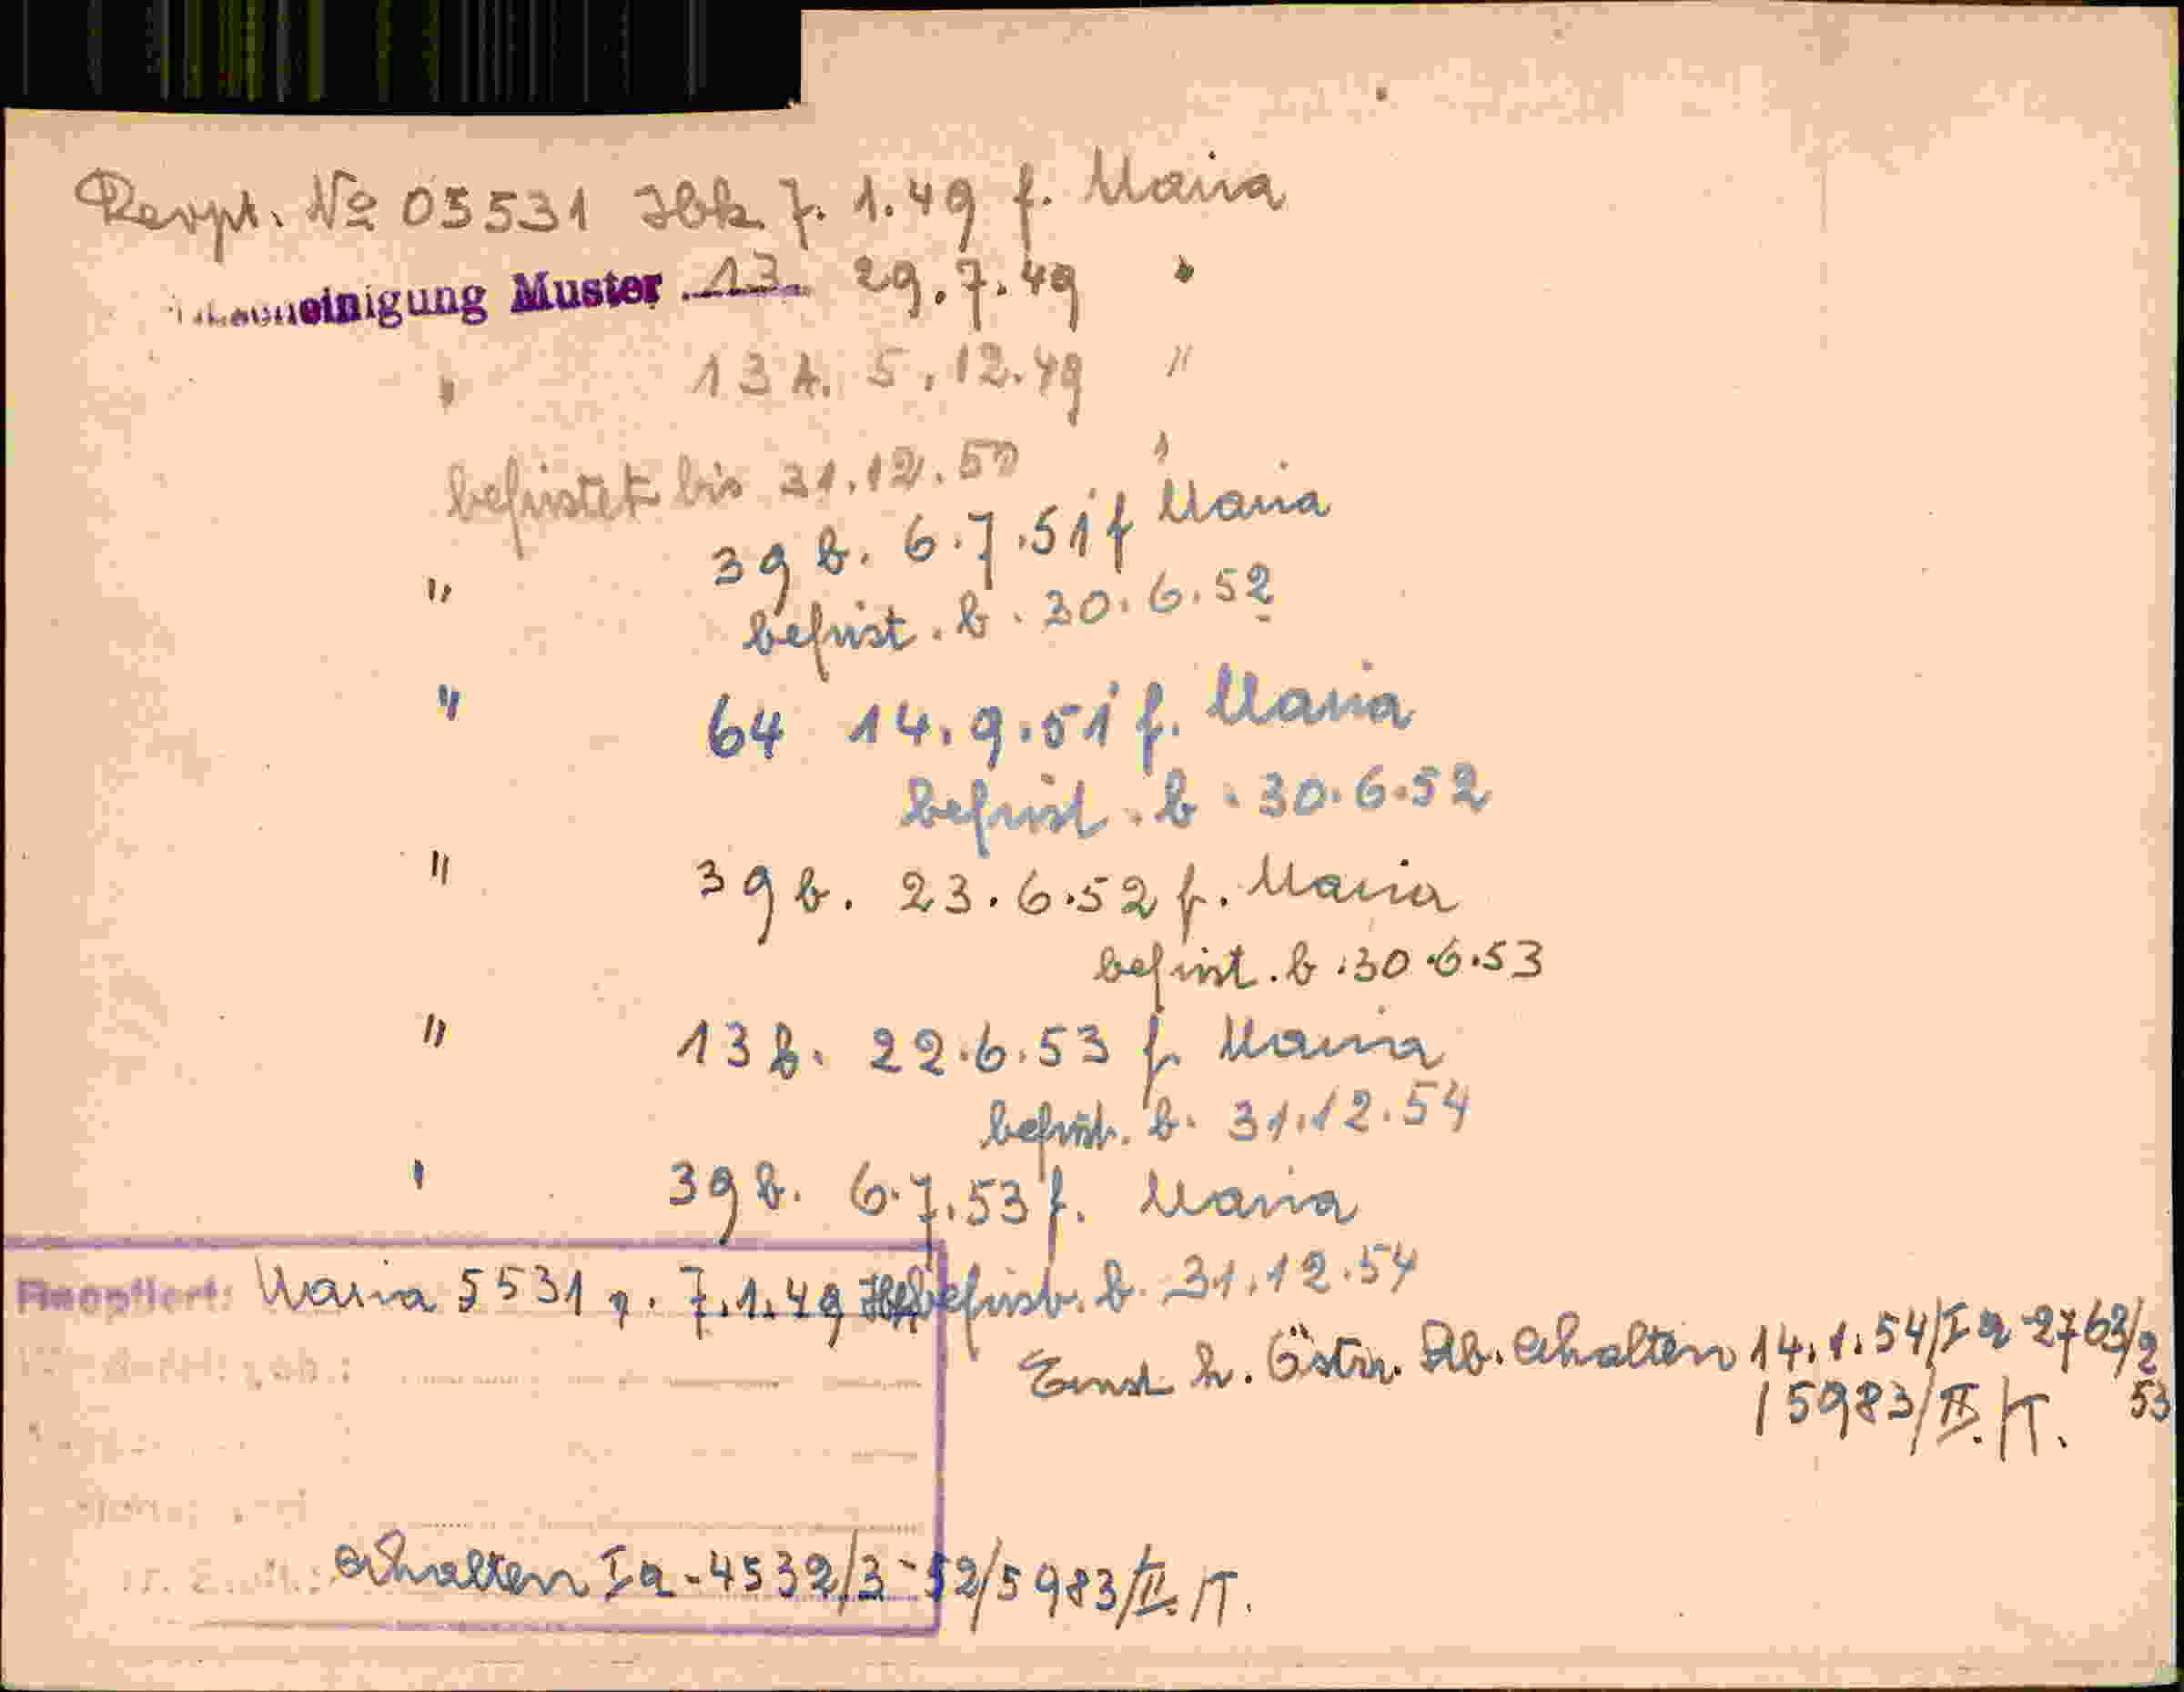 Rezept. № 05531 Ibk 7. 1. 49 f. Maria
einigung Muster 13. 29. 7. 49 "
" 13 A. 5. 12. 49 "
befristet bis 31. 12. 50 "
" 39 b. 6. 7. 51 f Maria
befrist. b. 30. 6. 52
" 64 14. 9. 51 f. Maria
befrist. b. 30. 6. 52
" 39 b. 23. 6. 52 f. Maria
befrist. b. 30. 6. 53
" 13 b. 22. 6. 53 f. Maria
befrist. b. 31. 12. 54
" 39 b. 6. 7. 53 f. Maria
befrist. b. 31. 12. 54
Maria 5531 v. 7. 1. 49
Ernst h. Östr. erhalten 14. 1. 54/Ia-2763/2
53
15983/II./T.
erhalten Ia-4532/3-52/5983/II./T.